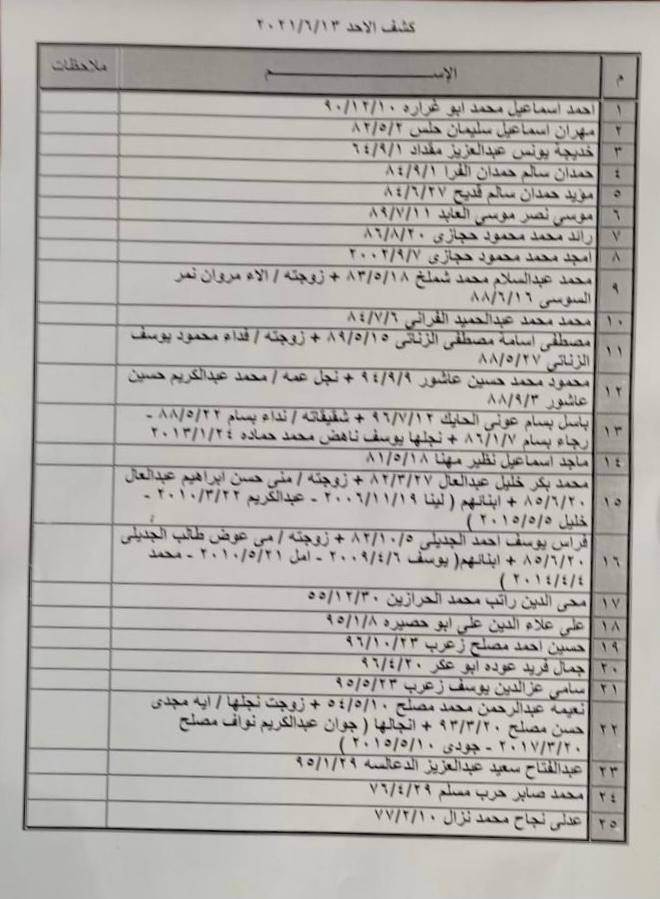 كشف الاحد ٢٠٢١/٦/١٣
م الإســـــــم ملاحظات
١ احمد اسماعيل محمد ابو غراره ٩٠/١٢/١٠
٢ مهران اسماعيل سليمان حلس ٨٢/٥/٢
٣ خديجة يونس عبدالعزيز مقداد ٦٤/٩/١
٤ حمدان سالم حمدان الفرا ٨٤/٩/١
٥ مؤيد حمدان سالم قديح ٨٤/٦/٢٧
٦ موسي نصر موسي العابد ٨٩/٧/١١
٧ رائد محمد محمود حجازى ٨٦/٨/٢٠
٨ امجد محمد محمود حجازى ٢٠٠٢/٩/٧
٩ محمد عبدالسلام محمد شملخ ٨٣/٥/١٨ + زوجته / الاء مروان نمر
السوسى ٨٨/٦/١٦
١٠ محمد محمد عبدالحميد الفرانى ٨٤/٧/٦
١١ مصطفى اسامة مصطفى الزناتى ٨٩/٥/١٥ + زوجته / فداء محمود يوسف
الزناتى ٨٨/٥/٢٧
١٢ محمود محمد حسين عاشور ٩٤/٩/٩ + نجل عمه / محمد عبدالكريم حسين
عاشور ٨٨/٩/٣
١٣ باسل بسام عونى الحايك ٩٦/٧/١٢ + شقيقاته / نداء بسام ٨٨/٥/٢٢ -
رجاء بسام ٨٦/١/٧ + نجلها يوسف ناهض محمد حماده ٢٠١٣/١/٢٤
١٤ ماجد اسماعيل نظير مهنا ٨١/٥/١٨
١٥ محمد بكر خليل عبدالعال ٨٢/٣/٢٧ + زوجته / منى حسن ابراهيم عبدالعال
٨٥/٦/٢٠ + ابنائهم ( لينا ٢٠٠٦/١١/١٩ - عبدالكريم ٢٠١٠/٣/٢٢ -
خليل ٢٠١٥/٥/٥ )
١٦ فراس يوسف احمد الجديلى ٨٢/١٠/٥ + زوجته / مى عوض طالب الجديلى
٨٥/٦/٢٠ + ابنائهم( يوسف ٢٠٠٩/٤/٦ - امل ٢٠١٠/٥/٢١ - محمد
٢٠١٤/٤/٤ )
١٧ محى الدين راتب محمد الحرازين ٥٥/١٢/٣٠
١٨ على علاء الدين على ابو حصيره ٩٥/١/٨
١٩ حسين احمد مصلح زعرب ٩٦/١٠/٢٣
٢٠ جمال فريد عوده ابو عكر ٩٦/٤/٢٠
٢١ سامى عزالدين يوسف زعرب ٩٥/٥/٢٣
٢٢ نعيمه عبدالرحمن محمد مصلح ٥٤/٥/١٠ + زوجت نجلها / ايه مجدى
حسن مصلح ٩٣/٣/٢٠ + انجالها ( جوان عبدالكريم نواف مصلح
٢٠١٧/٣/٢٠ - جودى ٢٠١٥/٥/١٠ )
٢٣ عبدالفتاح سعيد عبدالعزيز الدعالسه ٩٥/١/٢٩
٢٤ محمد صابر حرب مسلم ٧٦/٤/٢٩
٢٥ عدلى نجاح محمد نزال ٧٧/٢/١٠